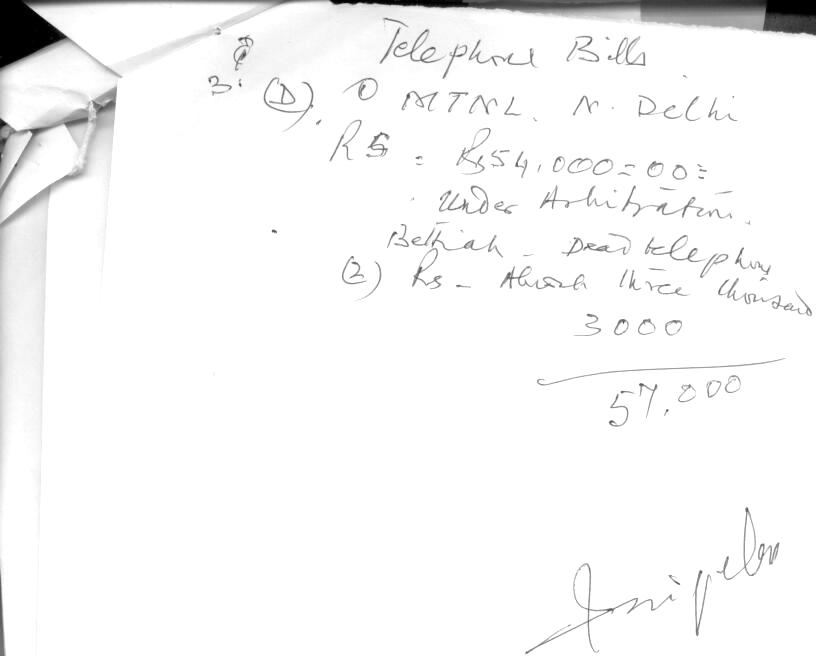 Telephone Bills
3. (D). ① MTNL. N. Delhi
RS = Rs 54,000=00=
Under Arbitration.
Bettiah - Dead telephone
(2) Rs - About three thousand
3000
57,000